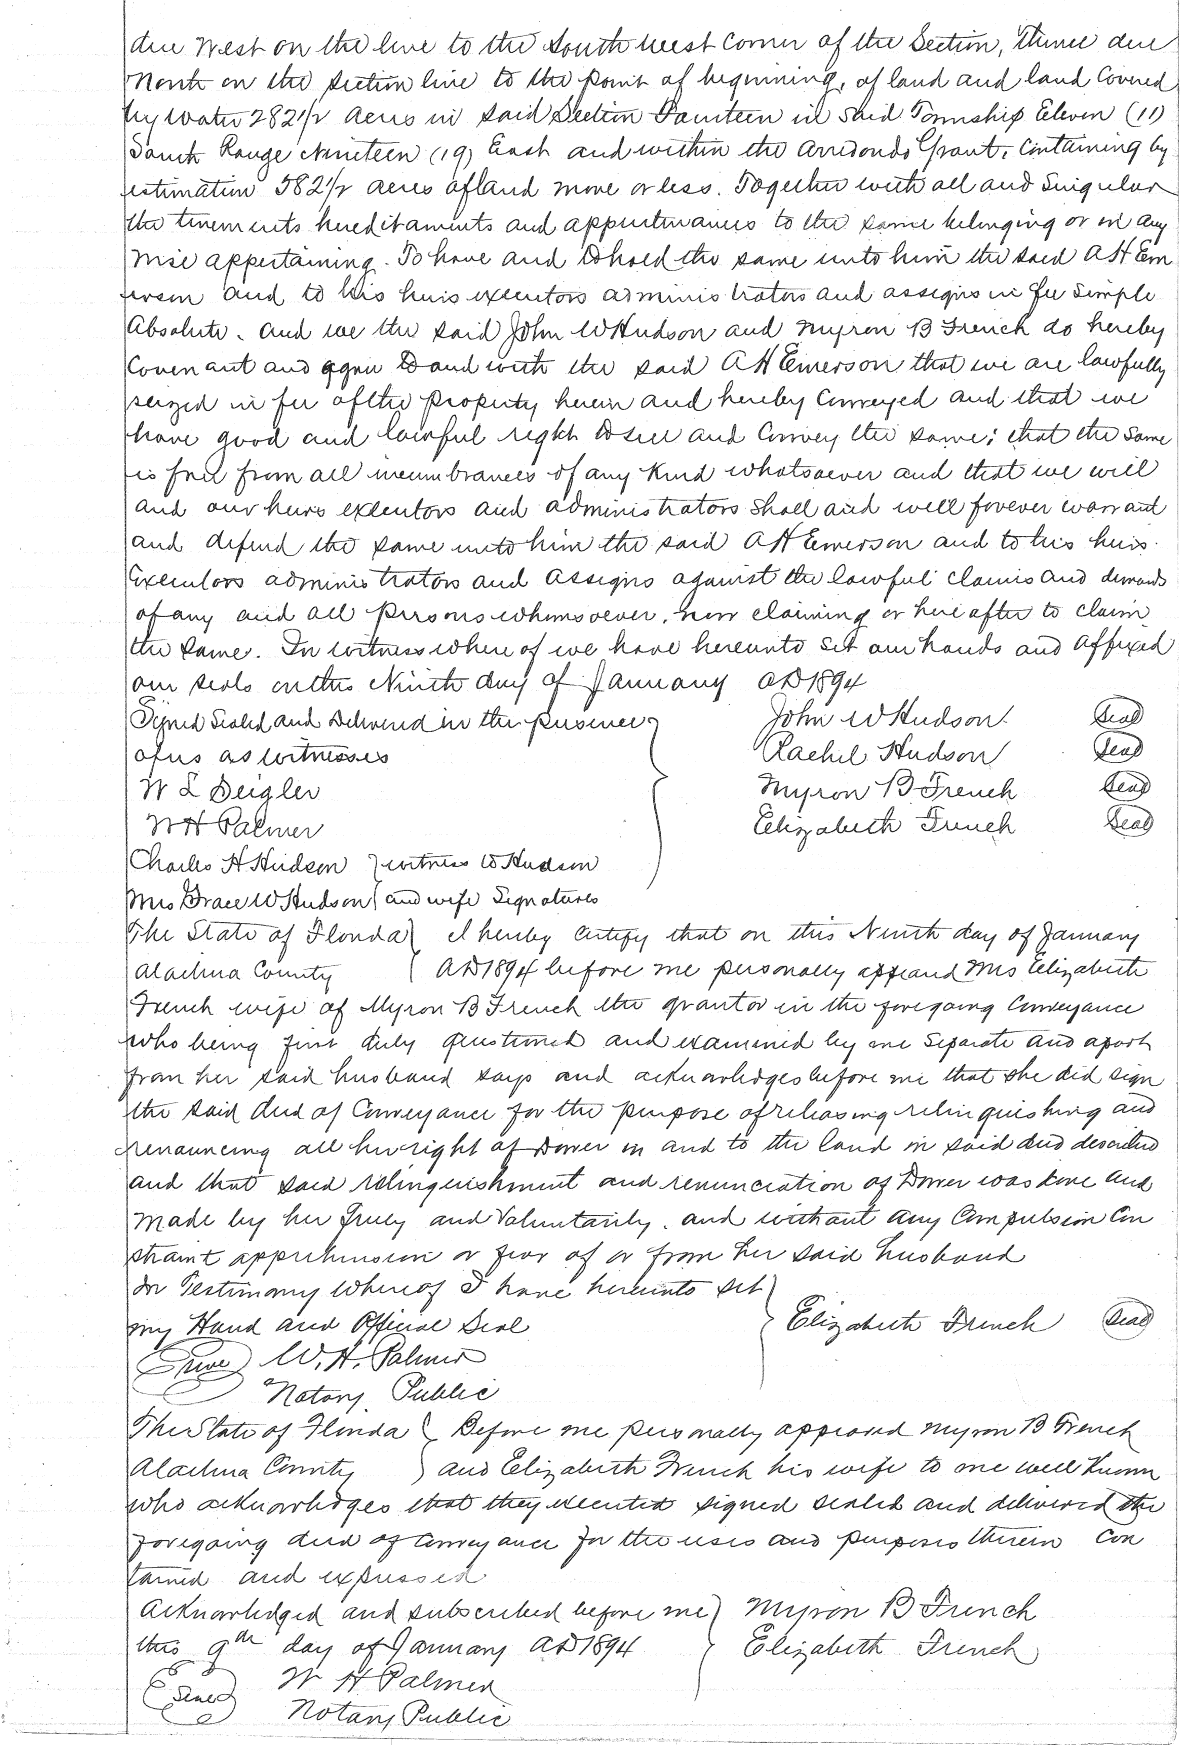 due West on the line to the South West corner of the Section, thence due
North on the section line to the point of beginning, of land and land covered
by water 282 1/2 acres in said Section Fourteen in said Township Eleven (11)
South Range Nineteen (19) East and within the Arredondo Grant, containing by
estimation 582 1/2 acres of land more or less. Together with all and Singular
the tinements hereditaments and appurtenances to the same belonging or in any
wise appertaining. To have and to hold the same unto him the said A H Em
erson and to his heirs executors administrators and assigns in fee Simple
Absolute. And we the said John W Hudson and Myron B French do hereby
Covenant and agree to and with the said A H Emerson that we are lawfully
seized in fee of the property herein and hereby conveyed and that we
have good and lawful right to sell and convey the same; that the same
is free from all incumbrances of any kind whatsoever and that we will
and our heirs executors and administrators shall and will forever warrant
and defend the same unto him the said A H Emerson and to his heirs
Executors administrators and assigns against the lawful claims and demands
of any and all persons whomsoever, now claiming or here after to claim
the same. In witness where of we have hereunto set our hands and affixed
our seals on this Ninth day of January AD 1894
Signed Sealed and Delivered in the presence John W Hudson Seal
of us as witnesses Rachel Hudson Seal
W L Seigler Myron B French Seal
W H Palmer Elizabeth French Seal
Charles H Hudson witness W Hudson
Mrs Grace W Hudson and wife Signatures
The State of Florida I hereby certify that on this Ninth day of January
Alachua County AD 1894 before me personally appeared Mrs Elizabeth
French wife of Myron B French the grantor in the foregoing conveyance
who being first duly questioned and examined by me Separate and apart
from her said husband says and acknowledges before me that she did sign
the said deed of Conveyance for the purpose of releasing relinquishing and
renouncing all her right of Dower in and to the land in said deed described
and that said relinquishment and renunciation of Dower was done and
made by her freely and Voluntarily. and without any Compulsion Con
straint apprehension or fear of or from her said husband
In Testimony whereof I have hereunto set
my Hand and Official Seal Elizabeth French Seal
Seal W. H. Palmer
Notary Public
The State of Florida Before me personally appeared Myron B French
Alachua County and Elizabeth French his wife to me well known
who acknowledges that they executed signed sealed and delivered the
foregoing deed of conveyance for the uses and purposes therein con
tained and expressed
Acknowledged and subscribed before me Myron B French
this 9th day of January AD 1894 Elizabeth French
Seal W H Palmer
Notary Public